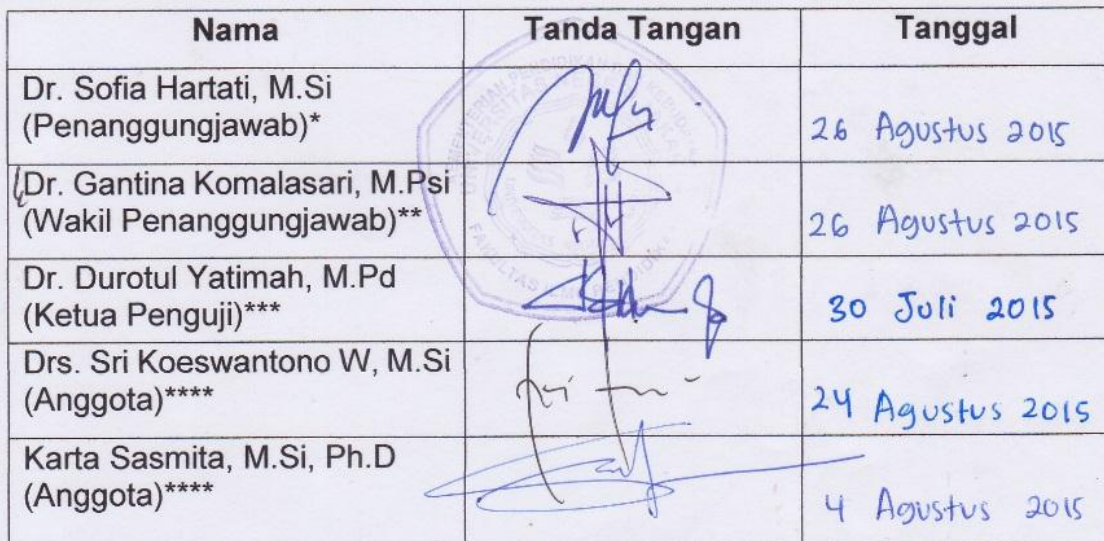 Nama Tanda Tangan Tanggal
Dr. Sofia Hartati, M.Si
(Penanggungjawab)* 26 Agustus 2015
Dr. Gantina Komalasari, M.Psi
(Wakil Penanggungjawab)** 26 Agustus 2015
Dr. Durotul Yatimah, M.Pd
(Ketua Penguji)*** 30 Juli 2015
Drs. Sri Koeswantono W, M.Si
(Anggota)**** 24 Agustus 2015
Karta Sasmita, M.Si, Ph.D
(Anggota)**** 4 Agustus 2015